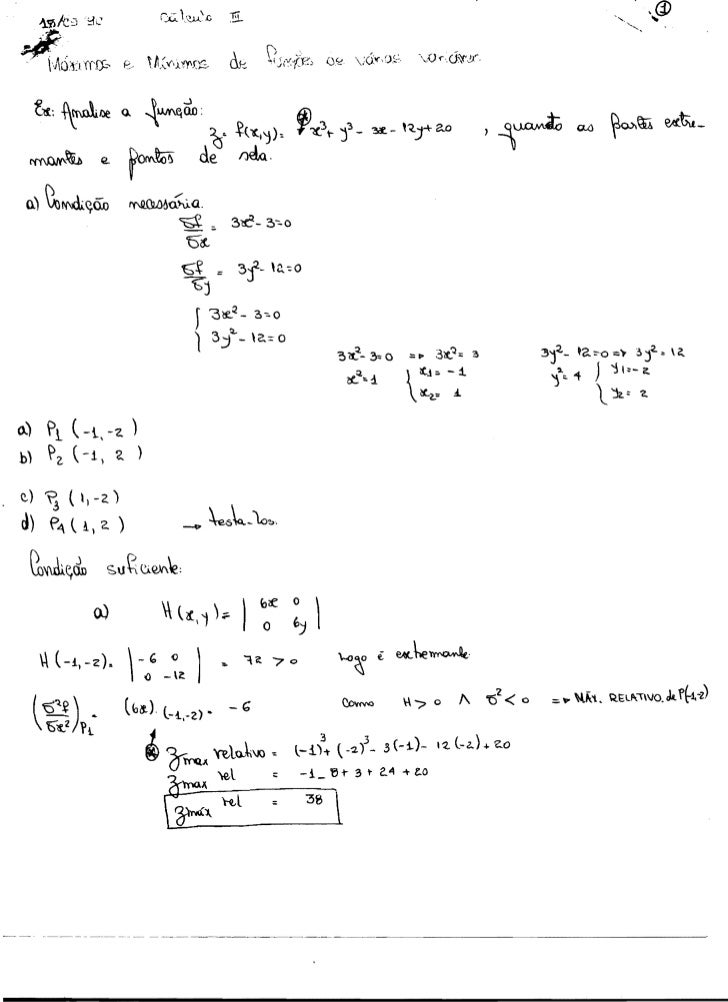 Cálculo III
1
Máximos e Mínimos de funções de várias variáveis.
Ex: Analise a função:
z = f(x,y) = x³ + y³ - 3x - 12y + 20 , quando as partes extre-
mantes e pontos de sela.
a) Condição necessária.
δf/δx = 3x² - 3 = 0
δf/δy = 3y² - 12 = 0
{ 3x² - 3 = 0
{ 3y² - 12 = 0
3x² - 3 = 0 => 3x² = 3 3y² - 12 = 0 => 3y² = 12
x² = 1 { x₁ = -1 y² = 4 { y₁ = -2
{ x₂ = 1 { y₂ = 2
a) P₁ (-1, -2)
b) P₂ (-1, 2)
c) P₃ (1, -2)
d) P₄ (1, 2) → testa-los.
Condição suficiente:
a) H(x,y) = | 6x 0 |
| 0 6y |
H(-1,-2) = | -6 0 | = 72 > 0 Logo é extremante
| 0 -12 |
(δ²f/δx²)P₁ = (6x) (-1,-2) = -6 Como H > 0 ∧ δ² < 0 => MÁX. RELATIVO. de P(-1,-2)
* z max relativo = (-1)³ + (-2)³ - 3(-1) - 12(-2) + 20
z max rel = -1 - 8 + 3 + 24 + 20
z máx rel = 38